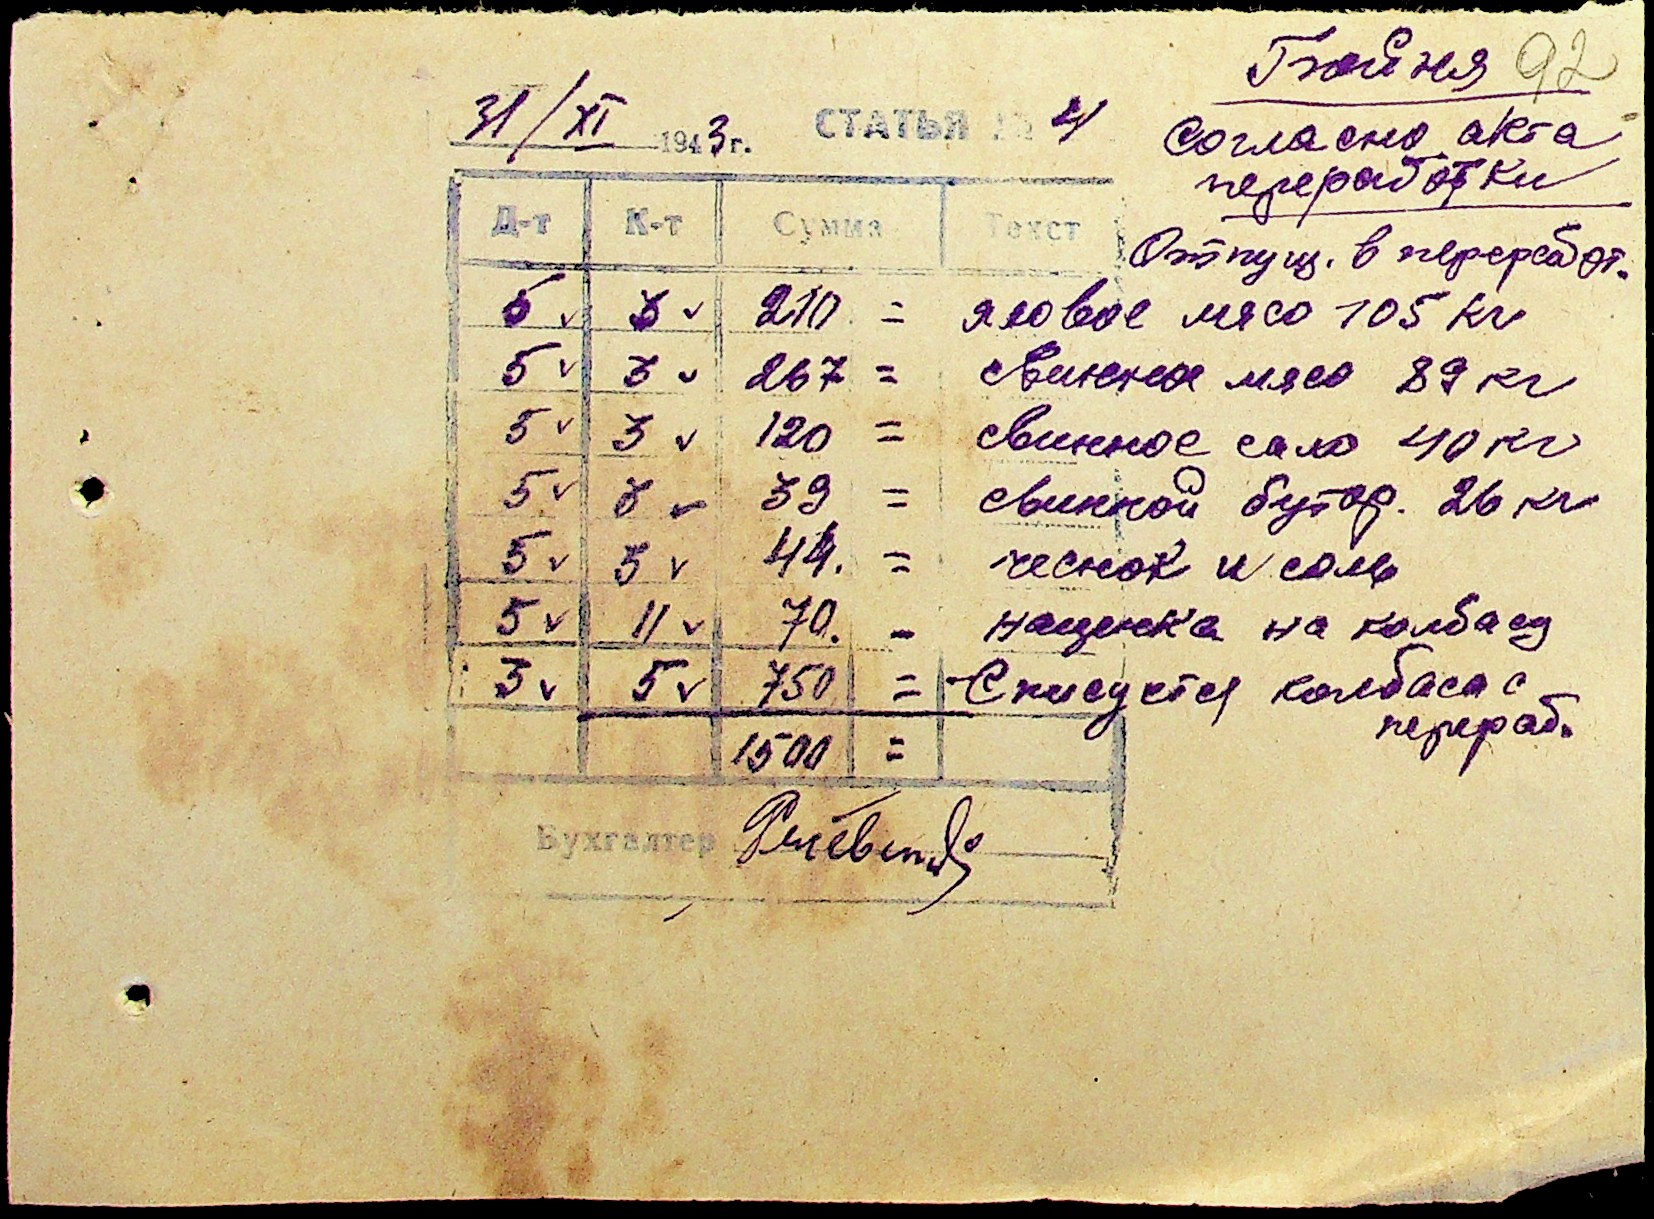 92
31/XI 1943 г. СТАТЬЯ № 4
Согласно акта
переработки
Д-т К-т Сумма Текст
Отпущ. в переработ.
5 v 3 v 210 = яловое мясо 105 кг
5 v 3 v 267 = свинное мясо 89 кг
5 v 3 v 120 = свинное сало 40 кг
5 v 3 v 39 = свинной бутор. 26 кг
5 v 3 v 44. = чеснок и соль
5 v 11 v 70. - наценка на колбасу
3 v 5 v 750 = Списуется колбаса с
перераб.
1500 =
Бухгалтер